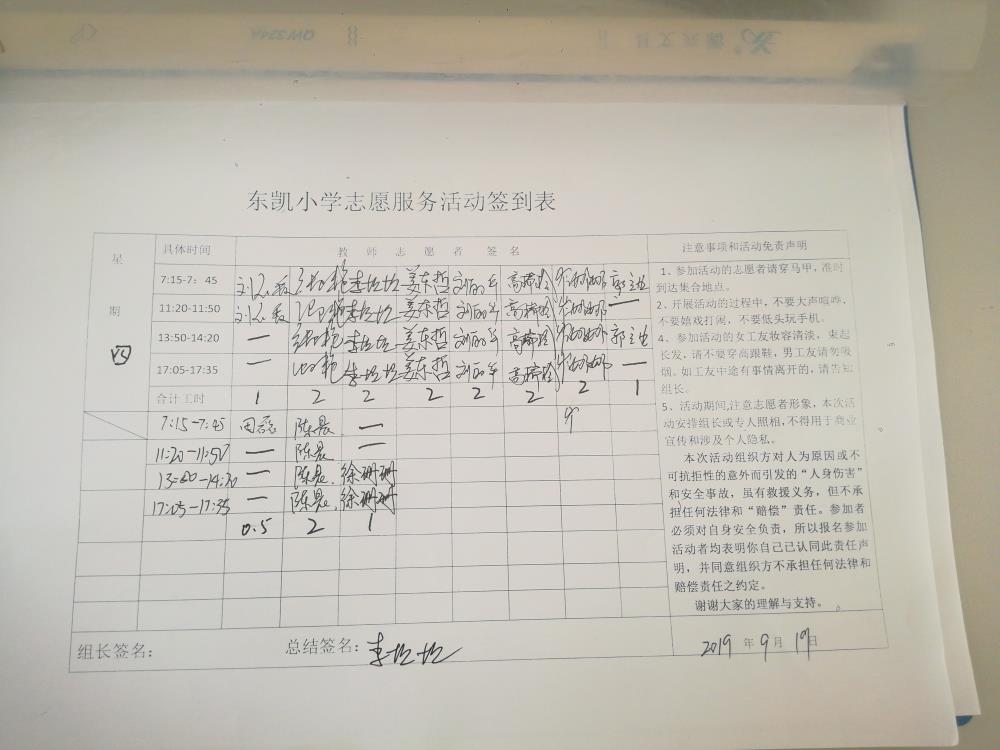 QW324A
东凯小学志愿服务活动签到表
星期 四
具体时间 教师志愿者签名 注意事项和活动免责声明
7:15-7:45 李垃垃 姜东哲 刘丽华 高婷玲
11:20-11:50 李垃垃 姜东哲 刘丽华 高婷玲 一
13:50-14:20 一 李垃垃 姜东哲 刘丽华 高婷玲
17:05-17:35 一 李垃垃 姜东哲 刘丽华 高婷玲 一
合计工时 1 2 2 2 2 2 2 1
7:15-7:45 田磊 陈晨 一
11:20-11:50 一 陈晨 一
13:50-14:20 一 陈晨 徐珊珊
17:05-17:35 一 陈晨 徐珊珊
0.5 2 1
1、参加活动的志愿者请穿马甲,准时
到达集合地点。
2、开展活动的过程中,不要大声喧哗,
不要嬉戏打闹,不要低头玩手机。
4、参加活动的女工友妆容清淡,束起
长发,请不要穿高跟鞋,男工友请勿吸
烟。如工友中途有事情离开的,请告知
组长。
5、活动期间,注意志愿者形象,本次活
动安排组长或专人照相,不得用于商业
宣传和涉及个人隐私。
本次活动组织方对人为原因或不
可抗拒性的意外而引发的“人身伤害”
和安全事故,虽有救援义务,但不承
担任何法律和“赔偿”责任。参加者
必须对自身安全负责,所以报名参加
活动者均表明你自己已认同此责任声
明,并同意组织方不承担任何法律和
赔偿责任之约定。
谢谢大家的理解与支持。
组长签名: 总结签名:李垃垃 2019年9月19日